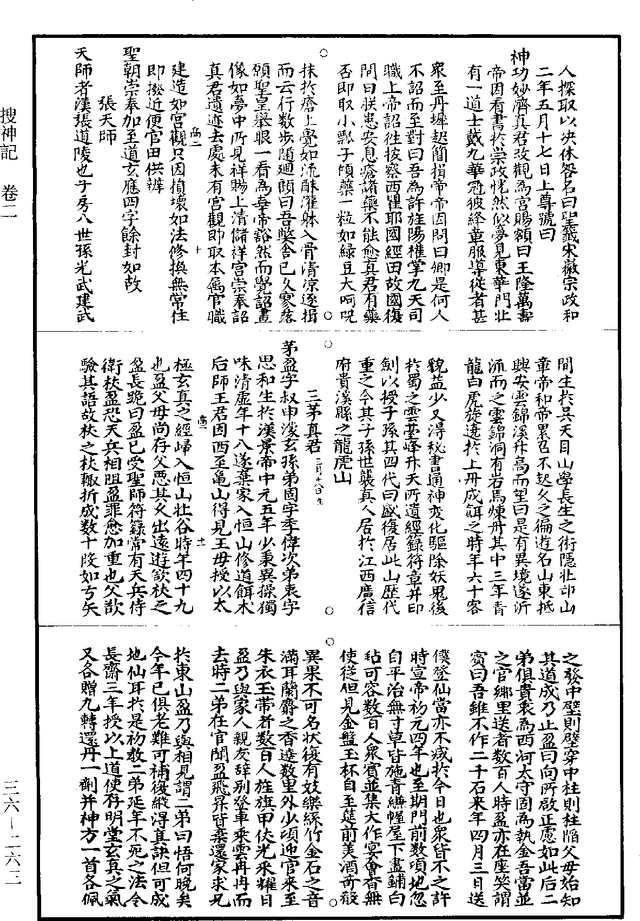 人探取以央休咎名曰聖籤宋徽宗政和
二年五月十七日上尊號曰
神功妙濟真君改觀為宮賜額曰玉隆萬壽
帝因看書於崇政恍然似夢見東華門北
有一道士戴九華冠披絳章服導從者甚
眾至丹墀起簡揖帝帝因問曰卿是何人
不詔而至對曰吾為許旌陽權掌九天司
職上帝詔往按察西瞿耶國經由故國復
問曰朕患安息瘡諸藥不能愈真君有藥
否即取小瓢子傾藥一粒如綠豆大呵呪
抹於瘡上覺如流酥灌躰入骨清凉遂揖
而云行數步隨廻顧曰吾獘舎已久寥落
願聖皇舉眼一看為幸帝豁然而覺詔畫
像如夢中所見祥賜上清儲祥宮崇奉詔
真君遺迹去處未有宮觀即取本属官職
建造如宮觀只因損壞如法修換無常住
即撥近便官田供辦
聖朝崇奉加至道玄應四字餘封如故
張天師
天師者漢張道陵也子房八世孫光武建武
間生於吳天目山學長生之術隱北邙山
章帝和帝累召不起久之徧遊名山東抵
興安雲錦溪升高而望曰是有異境遂泝
流而之雲錦洞有岩焉煉丹其中三年青
龍白虎旋遶於上丹成餌之時年六十容
貌益少又浔秘書通神变化驅除妖鬼後
於蜀之雲臺峰升天所遺經籙符章并印
劍以授子孫其四代曰盛復居此山歷代
重之今其子孫世襲真人居於江西廣信
府貴溪縣之龍虎山
三茅真君
茅盈字叔申濛玄孫弟固字季偉次弟衷字
思和生於漢景帝中元五年少秉異操獨
味清虛年十八遂棄家入恒山修道餌木
后師王君因西至龜山得見王母授以太
極玄真之經歸入恒山北谷時年四十九
也盈父母尚存父怒其久出遠遊欲杖之
盈長跪曰盈已受聖師符籙常有天兵侍
衛杖盈恐天兵相阻盈罪愈加重也父欲
驗其語故杖之杖輙折成数十段如弓矢
之發中壁則壁穿中柱則柱陷父母始知
其道成乃止盈曰向所啟正慮如此后二
弟俱貴衷為西河太守固為執金吾當並
之官鄉里送者数百人時盈亦在座笑謂
賓曰吾雖不作二千石来年四月三日送
僕登仙當亦不减於今日也眾皆不之許
時宣帝初元四年也至期門前数頃地忽
自平治無寸草皆施青縑幄屋下盡鋪白
毡可容数百人眾賓並集大作宴會杳無
使從但見金盤玉杯自至筵前美酒奇殽
異果不可名狀復有妓樂絲竹金石之音
滿耳蘭麝之香達数里外少頃迎官来至
朱衣玉帶者数百人旌旗甲仗光釆耀日
盈乃與家人親友辞别登車乘雲冉冉而
去時二弟在官聞盈飛昇皆棄還家求兄
於東山盈乃與相見謂二弟曰悟何晚矣
今年已俱老難可補復縱浔真訣但可成
地仙耳於是初教二弟延年不死之法令
長齋三年授以上道使存明堂玄真之氣
又各贈九轉還丹一劑并神方一首各佩
搜神記 卷二
三六－二六三